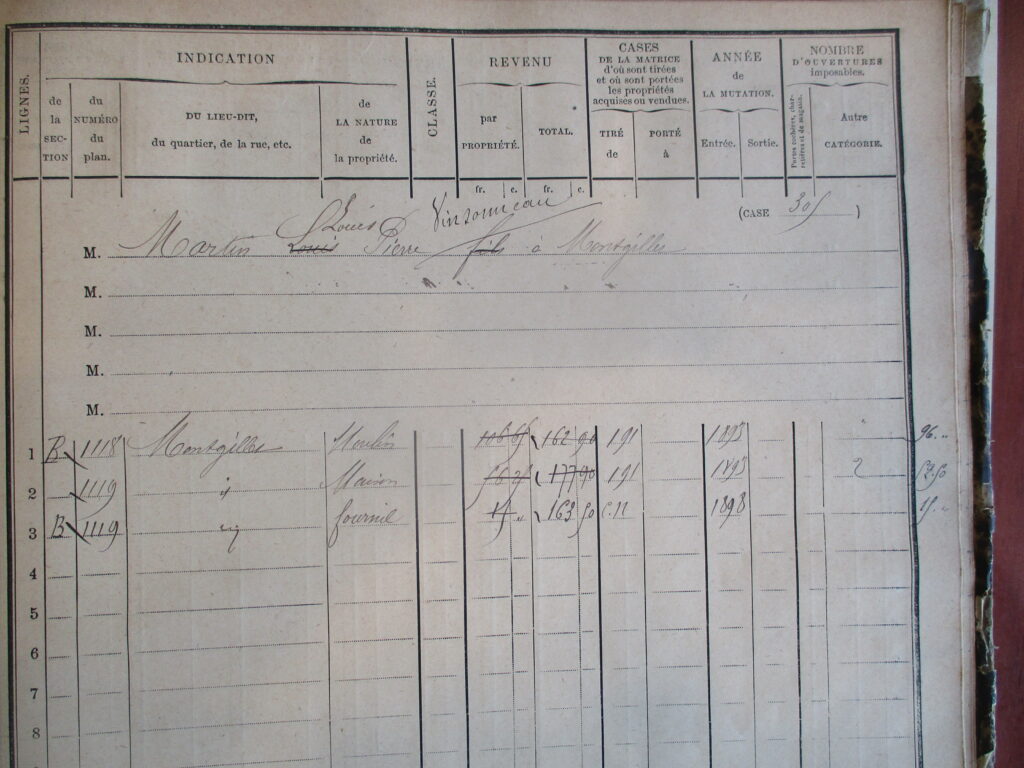 INDICATION
REVENU
CASES
DE LA MATRICE
d'où sont tirées
et où sont portées
les propriétés
acquises ou vendues.
ANNÉE
de
LA MUTATION.
NOMBRE
D'OUVERTURES
imposables.
LIGNES.
de
la
SEC-
TION
du
NUMÉRO
du
plan.
DU LIEU-DIT,
du quartier, de la rue, etc.
de
LA NATURE
de
la propriété.
CLASSE.
par
PROPRIÉTÉ.
TOTAL.
TIRÉ
de
PORTÉ
à
Entrée.
Sortie.
Portes cochères, char-
retières et de magasin.
Autre
CATÉGORIE.
fr. c. fr. c.
(CASE 305 )
Louis Vinsonneau
M. Martin Louis Pierre fils à Montgilles
M.
M.
M.
M.
1 B 1118 Montgilles Moulin 162 90 191 1893 96 "
2 1119 " Maison 177 90 191 1893 2 52 50
3 B 1119 " fournil 15 " 163 50 C.11 1898 15 "
4
5
6
7
8